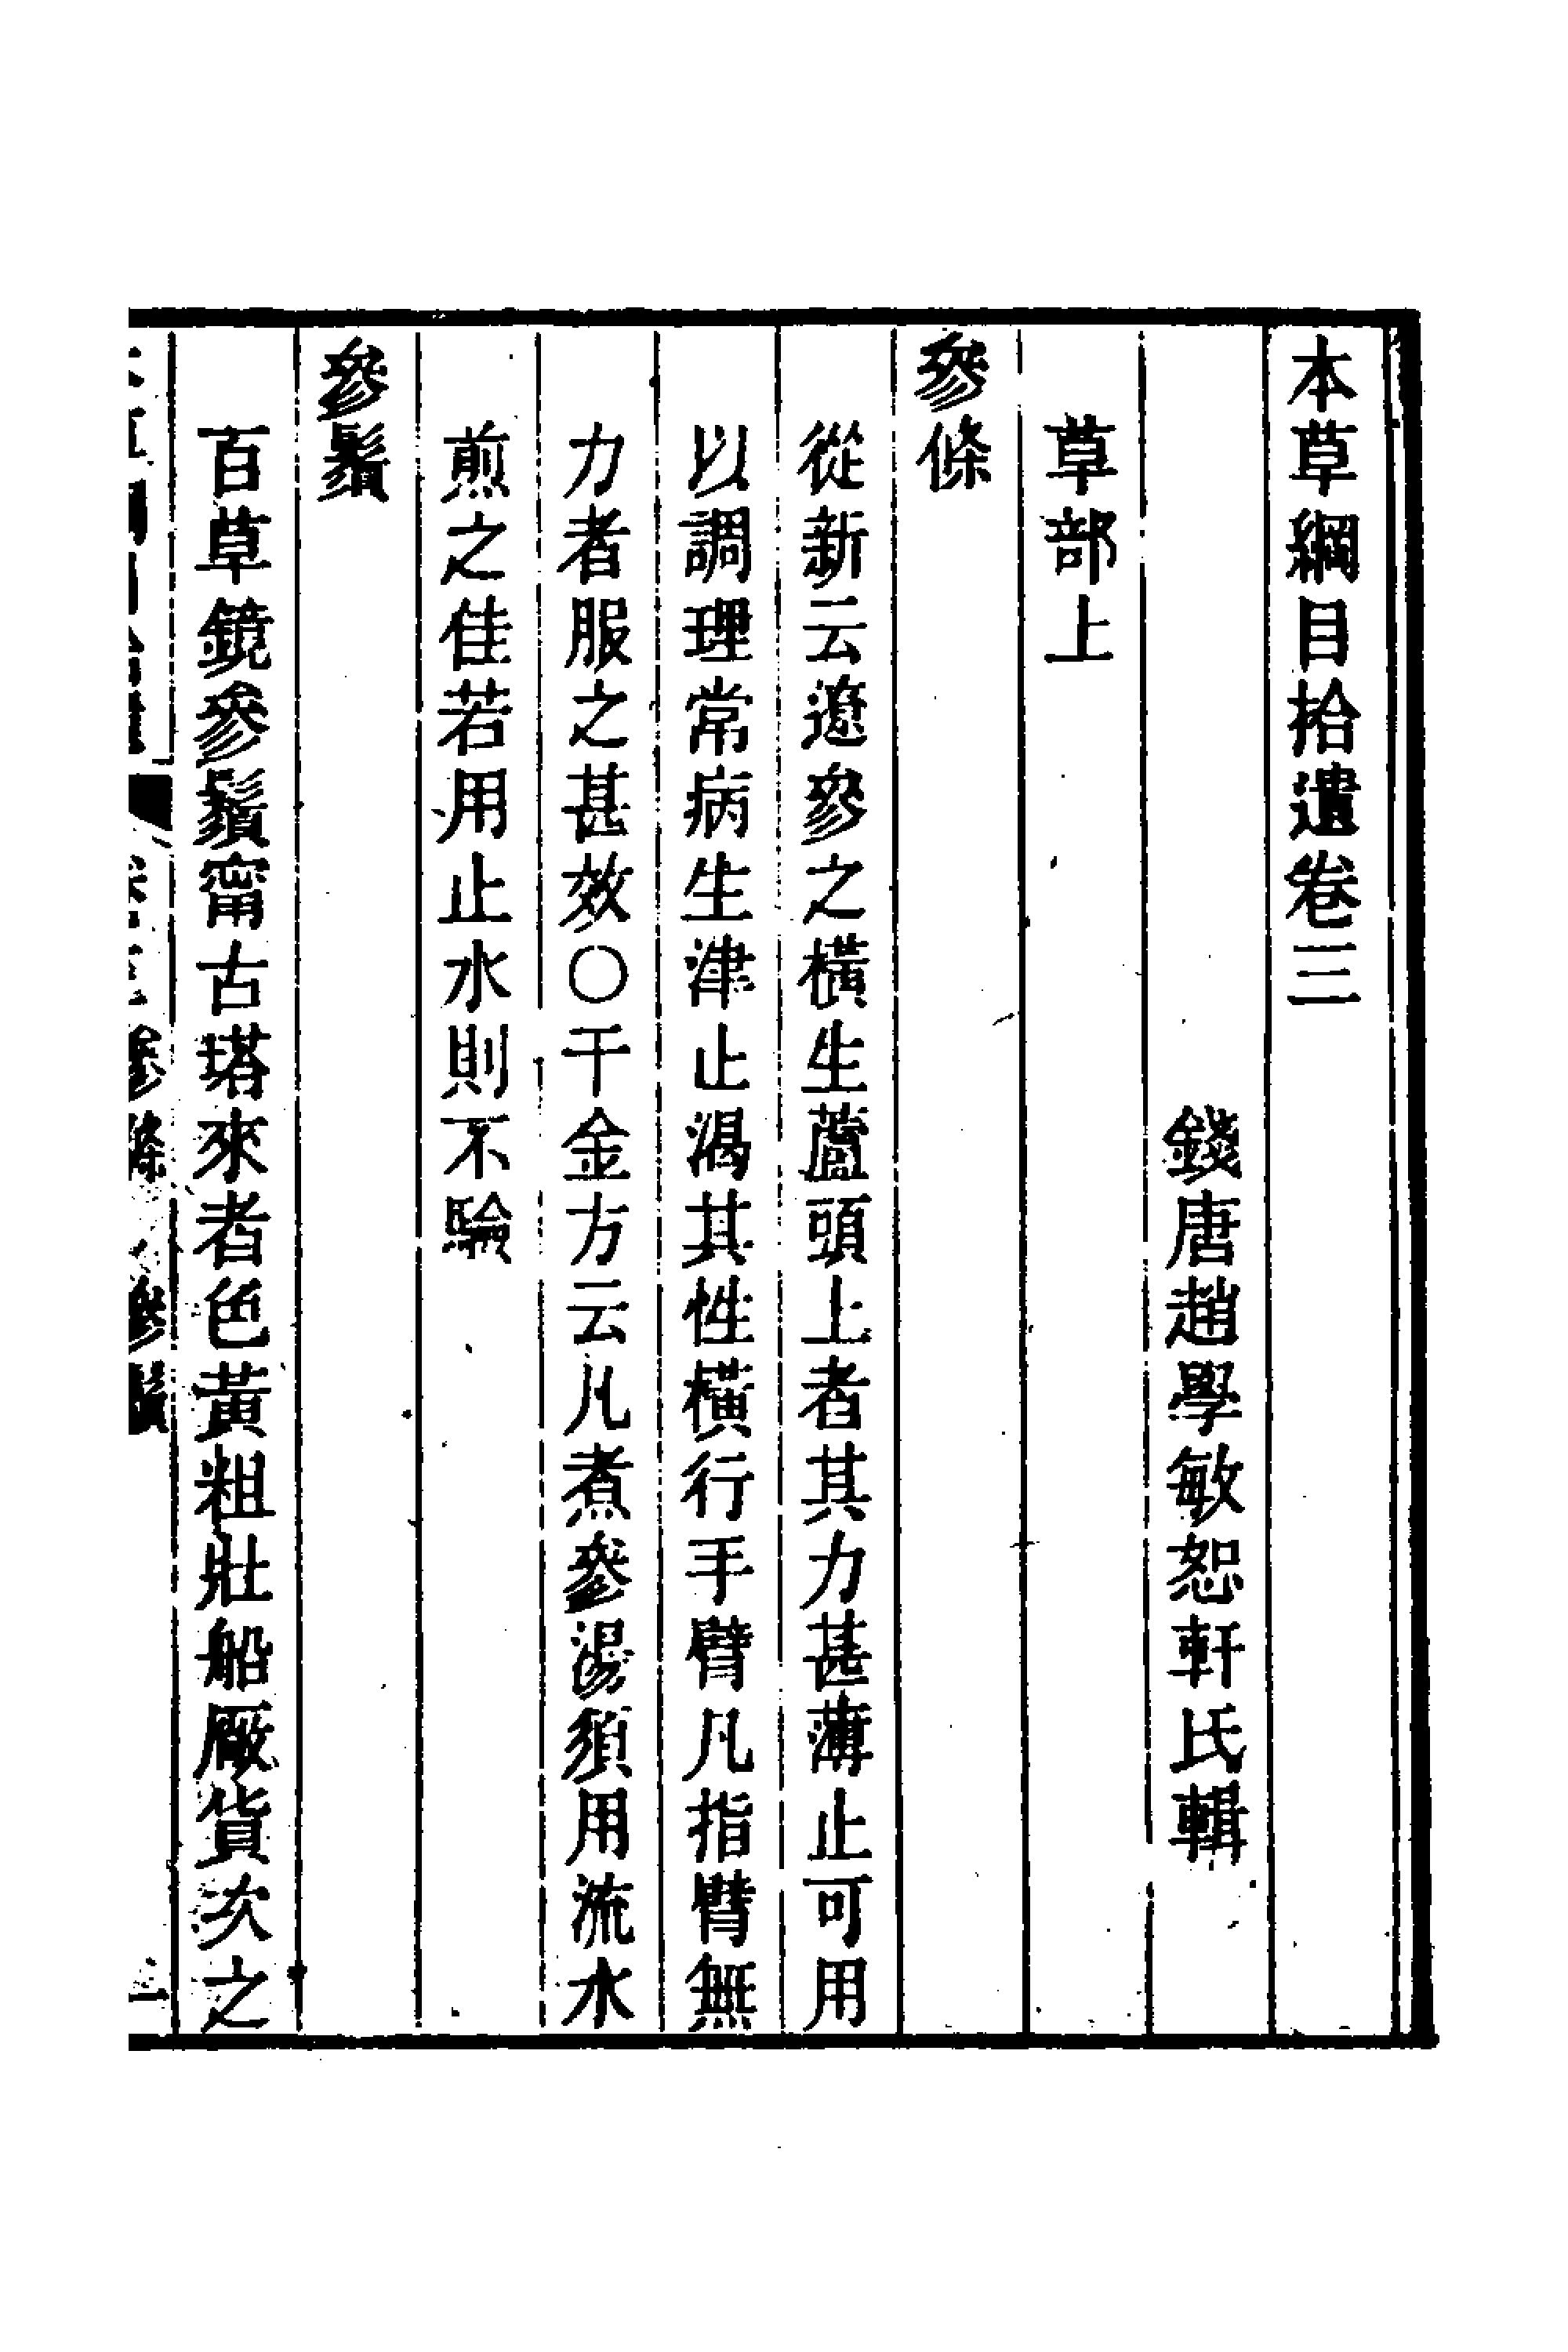 本草綱目拾遺卷三
錢唐趙學敏恕軒氏輯
草部上
參條
從新云遼參之橫生蘆頭上者其力甚薄止可用
以調理常病生津止渴其性橫行手臂凡指臂無
力者服之甚效○千金方云凡煮參湯須用流水
煎之佳若用止水則不驗
參鬚
百草鏡參鬚甯古塔來者色黃粗壯船厰貨次之